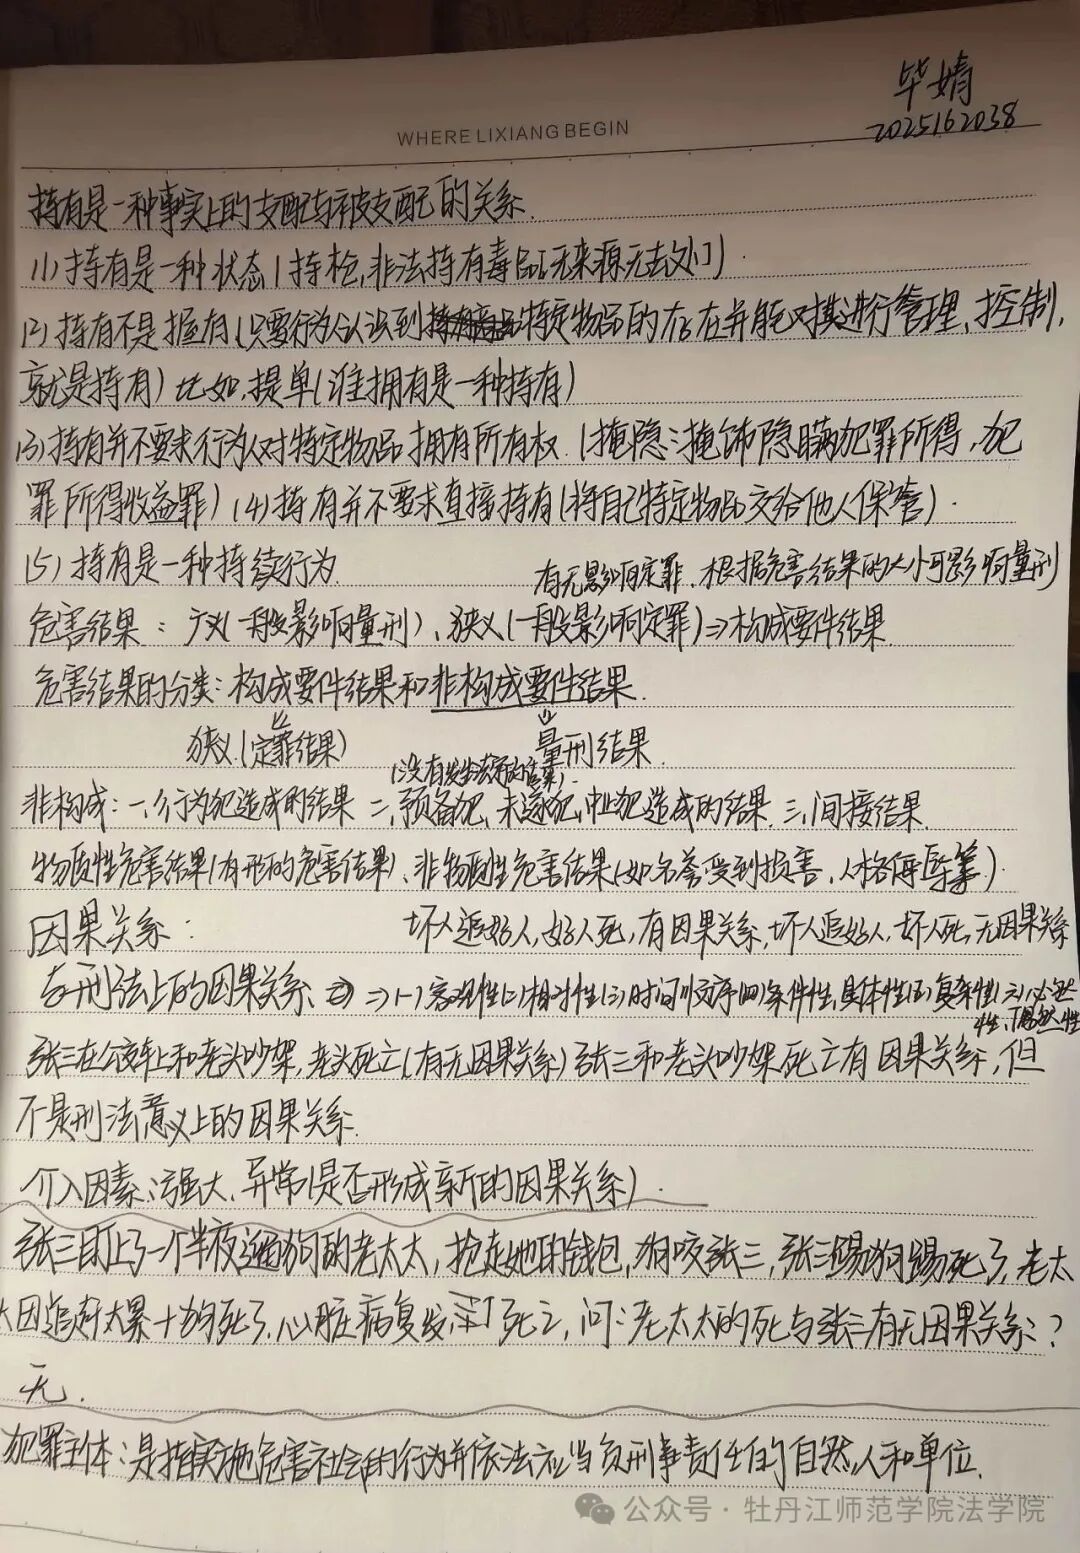 毕婧
2025162038
WHERE LIXIANG BEGIN
持有是一种事实上的支配与被支配的关系.
(1) 持有是一种状态(持枪,非法持有毒品(无来源无去处)).
(2) 持有不是握有(只要行为人认识到特定物品的存在并能对其进行管理、控制,
就是持有) 比如,提单(谁拥有是一种持有)
(3) 持有并不要求行为人对特定物品拥有所有权.(掩隐:掩饰隐瞒犯罪所得,犯
罪所得收益罪) (4) 持有并不要求直接持有(将自己特定物品交给他人保管).
(5) 持有是一种持续行为.
有无影响定罪.根据危害结果的大小可影响量刑
危害结果:广义(一般影响量刑)、狭义(一般影响定罪)⇒构成要件结果.
危害结果的分类:构成要件结果和非构成要件结果.
狭义.(定罪结果) 量刑结果.
(没有发生法定的结果).
非构成:一、行为犯造成的结果 二、预备犯、未遂犯、中止犯造成的结果.三、间接结果.
物质性危害结果(有形的危害结果)、非物质性危害结果(如名誉受到损害,人格侮辱等).
因果关系: 坏人追好人,好人死,有因果关系,坏人追好人,坏人死,无因果关系
与刑法上的因果关系 ⇒(一)客观性(二)相对性(三)时间顺序(四)条件性,具体性(五)复杂性(六)必然
性、偶然性
张三在公交车上和老头吵架,老头死亡(有无因果关系)张三和老头吵架死亡有因果关系,但
不是刑法意义上的因果关系.
介入因素:强大、异常(是否形成新的因果关系).
张三盯上了一个半夜遛狗的老太太,抢走她的钱包,狗咬张三,张三踢狗踢死了,老太
太因追赶太累+狗死了,心脏病复发 死亡,问:老太太的死与张三有无因果关系:?
无.
犯罪主体:是指实施危害社会的行为并依法应当负刑事责任的自然人和单位.
公众号·牡丹江师范学院法学院